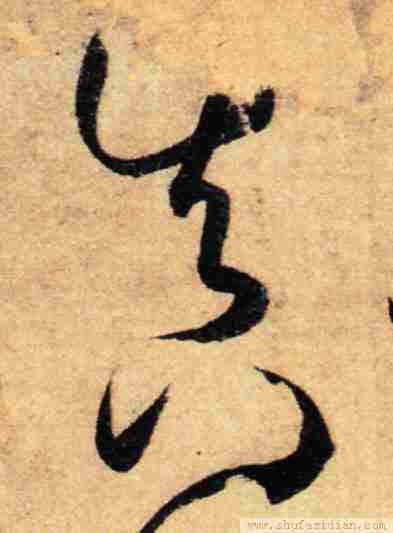 真
www.shufazidian.com